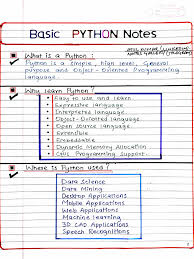 Basic PYTHON Notes
What is a Python :
Python is a simple, high level, General
purpose and Object-Oriented Programming
language.
Why learn Python ?
Easy to use and learn
Expressive language
Interpreted language
Object-Oriented language
Open source language
Extensible
Embeddable
Dynamic Memory Allocation
GUI Programming Support
Where is Python used ?
Data Science
Data Mining
Desktop Applications
Mobile Applications
Web Applications
Machine learning
3D CAD Applications
Speech Recognitions